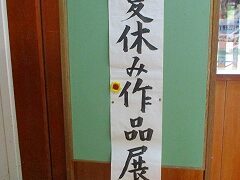 夏休み作品展